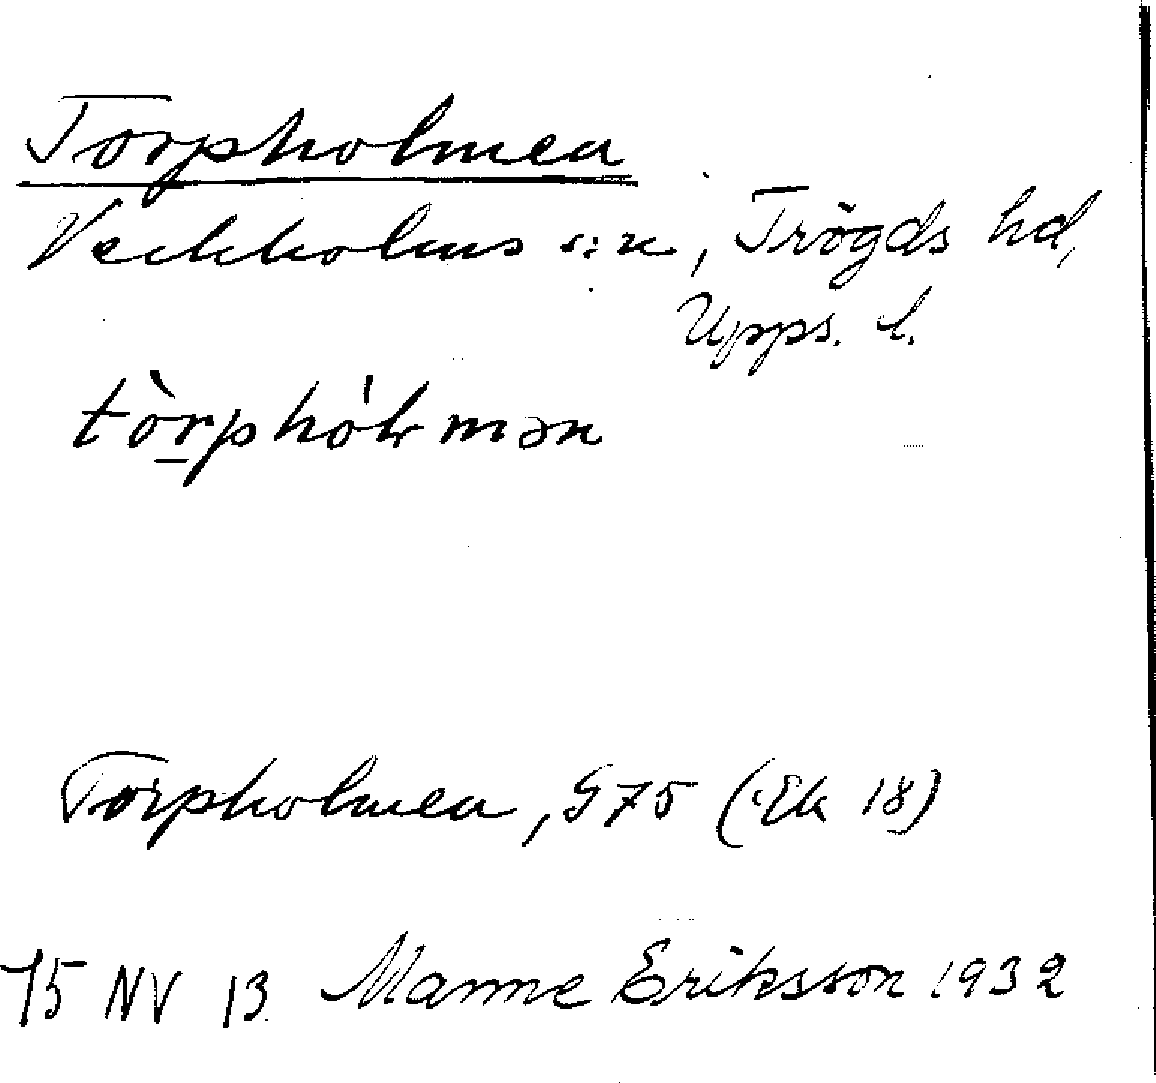 Torpholmen
Veckholms s:n, Trögds hd,
Upps. l.
tòrphólmən
Torpholmen, G75 (Ek 18)
75 NV 13 Manne Eriksson 1932